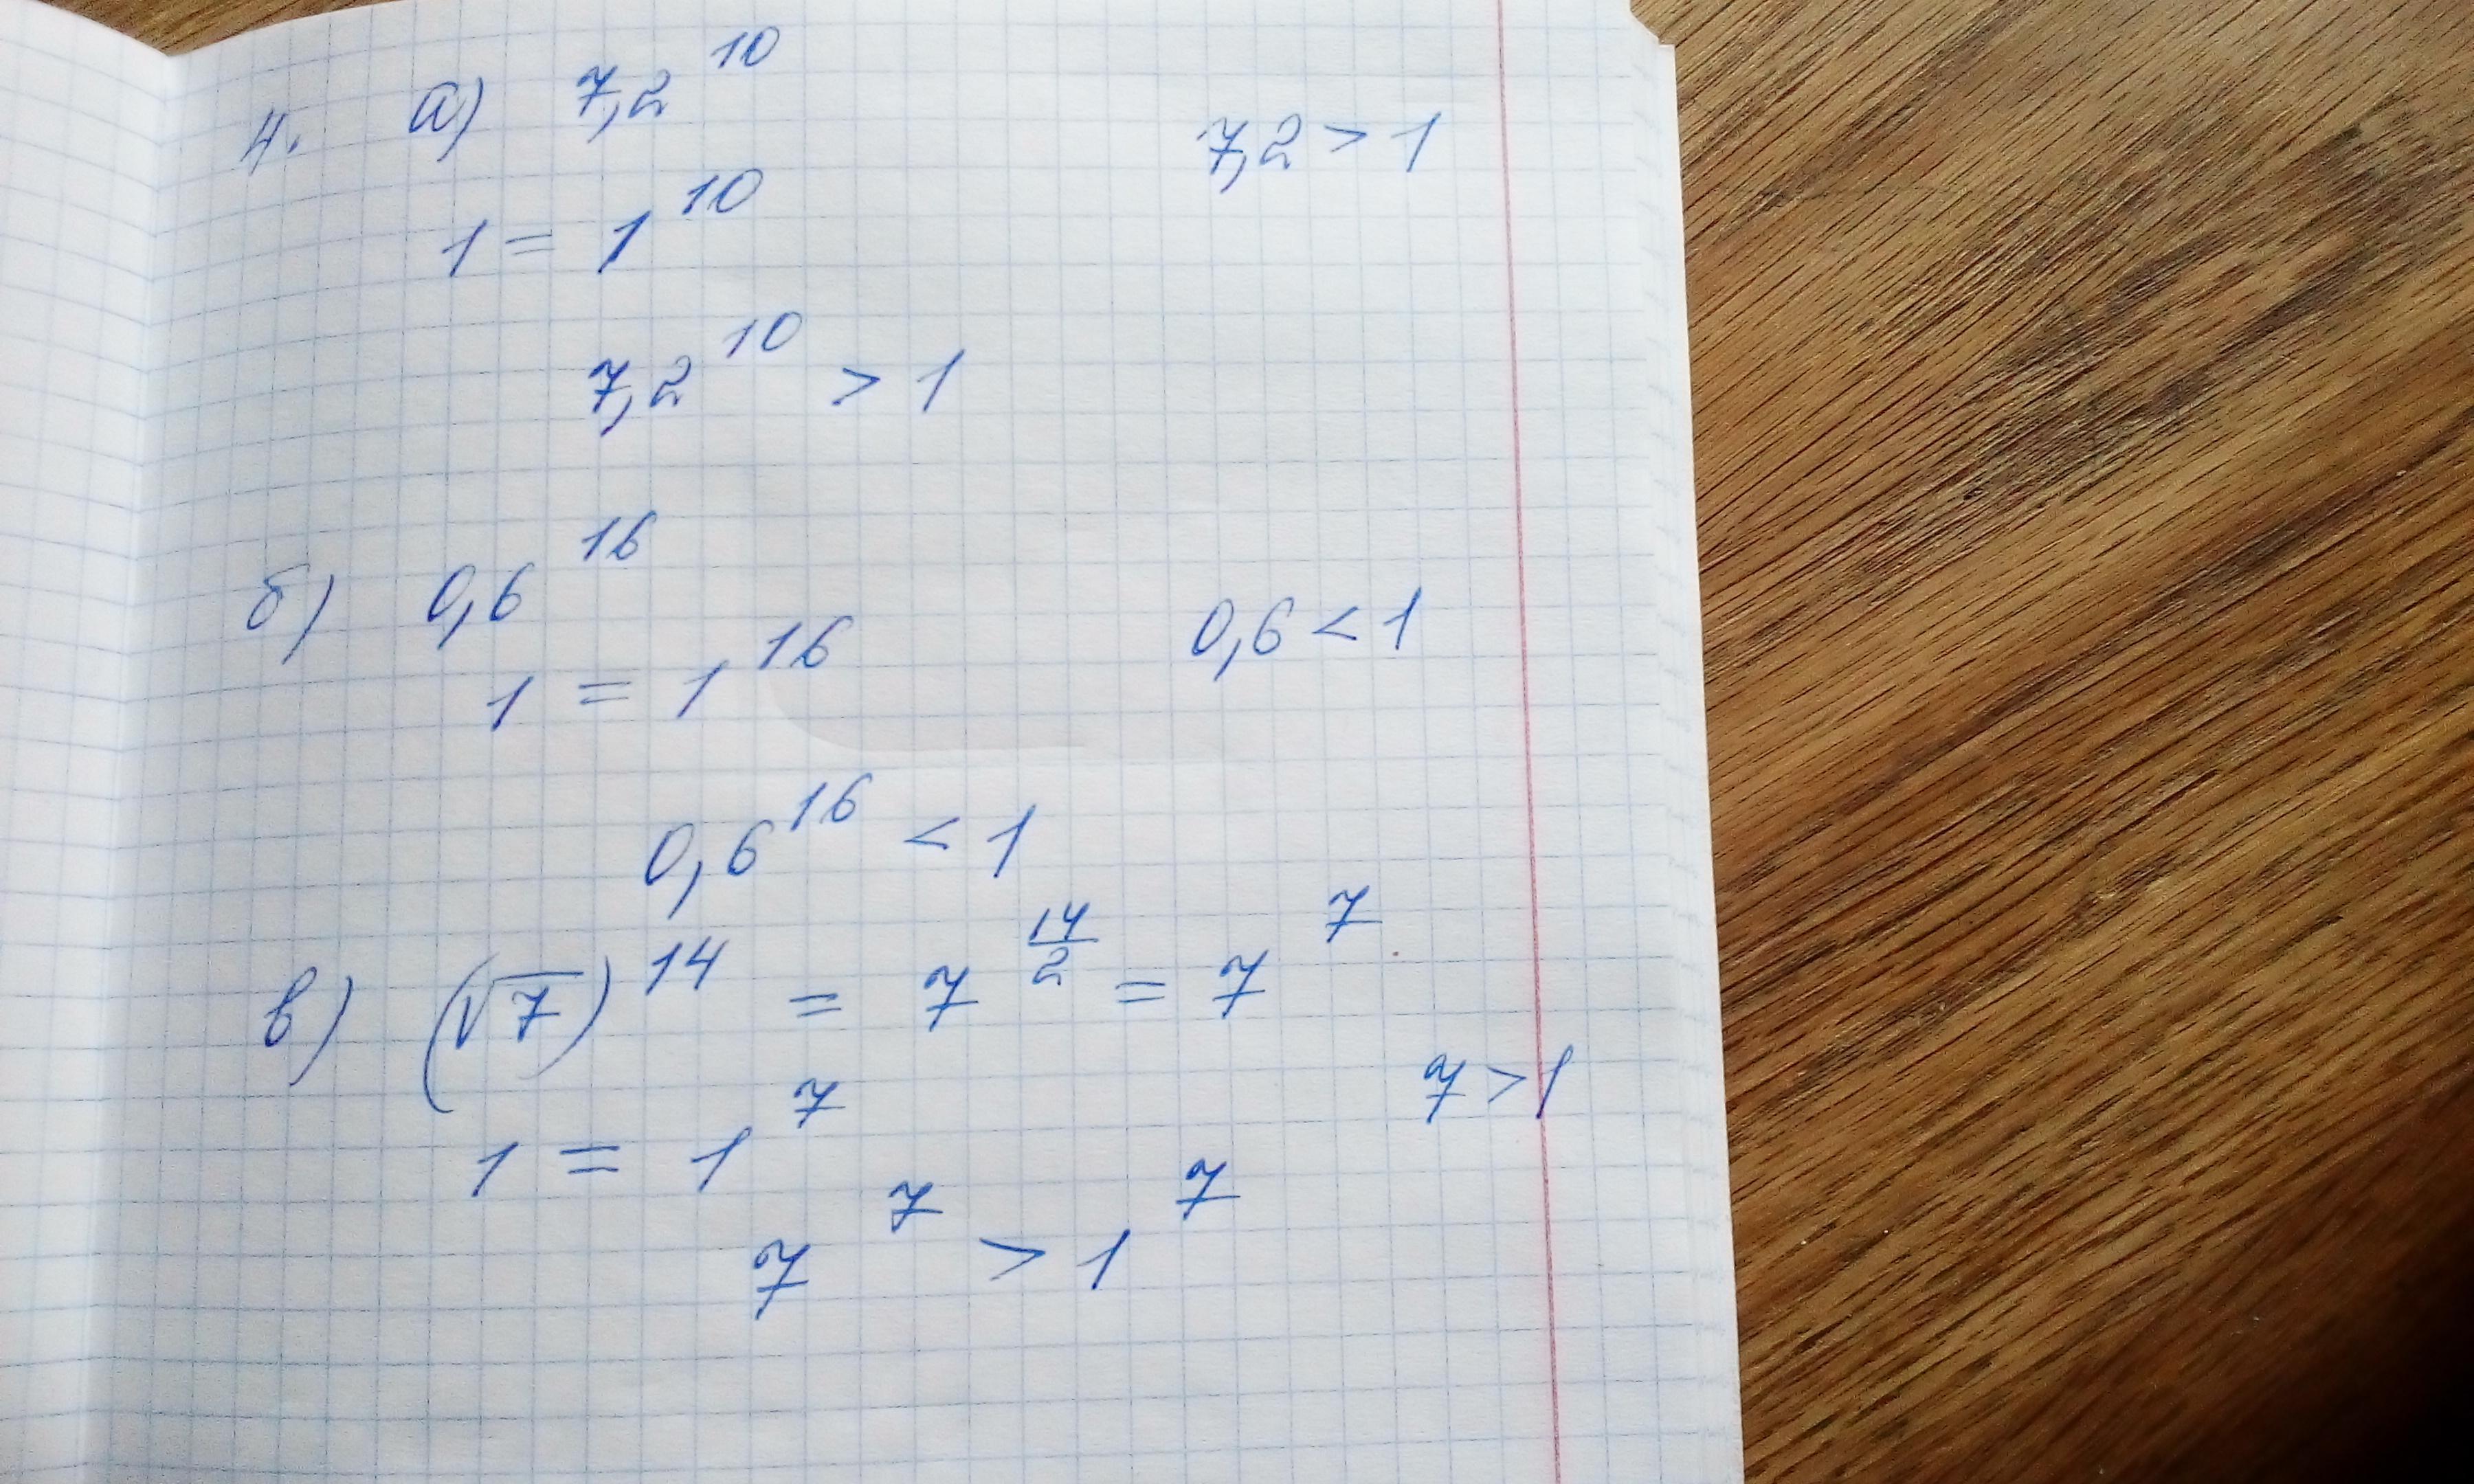 4. а) 7,2^10
7,2 > 1
1 = 1^10
7,2^10 > 1
б) 0,6^16
0,6 < 1
1 = 1^16
0,6^16 < 1
в) (√7)^14 = 7^(14/2) = 7^7
7 > 1
1 = 1^7
7^7 > 1^7